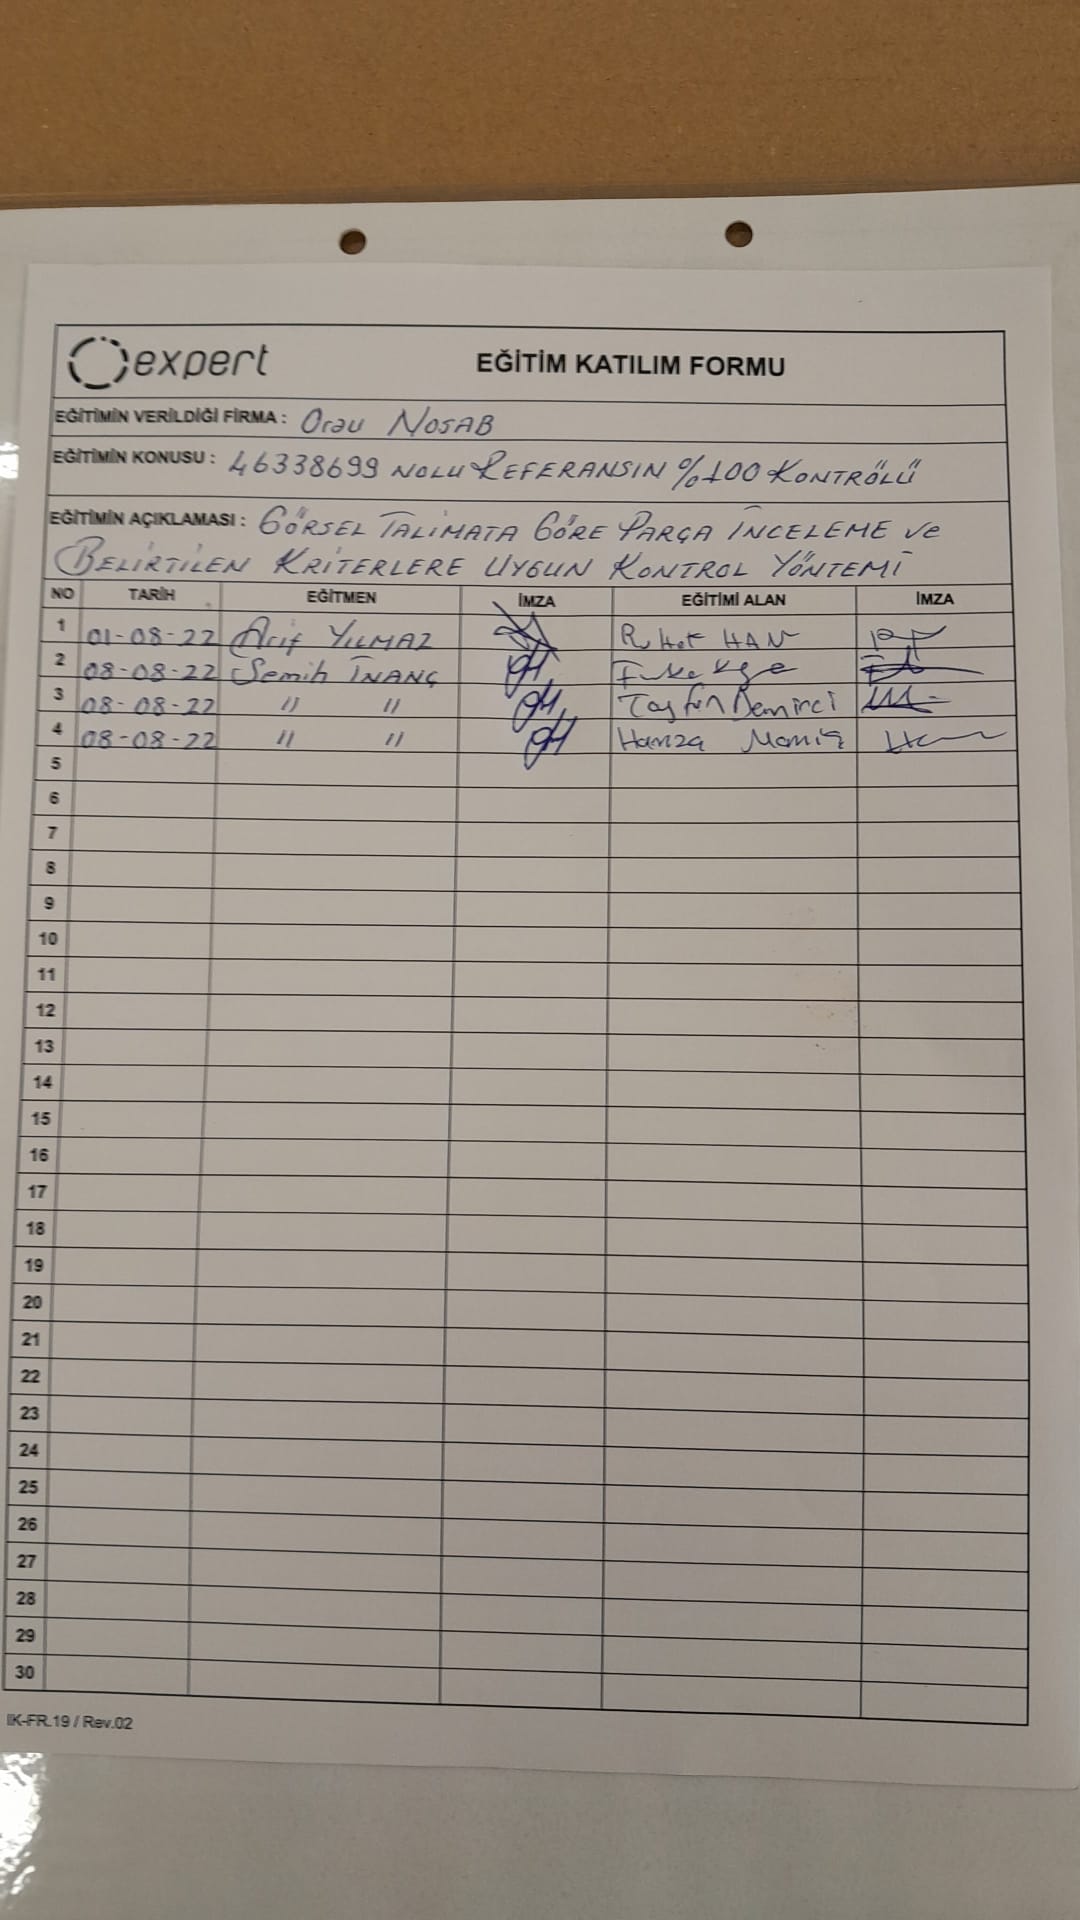 expert
EĞİTİM KATILIM FORMU
EĞİTİMİN VERİLDİĞİ FİRMA : Orau NOSAB
EĞİTİMİN KONUSU : 46338699 NOLU REFERANSIN %100 KONTRÖLÜ
EĞİTİMİN AÇIKLAMASI : GÖRSEL TALİMATA GÖRE PARÇA İNCELEME ve
BELİRTİLEN KRİTERLERE UYGUN KONTROL YÖNTEMİ
NO TARİH EĞİTMEN İMZA EĞİTİMİ ALAN İMZA
1 01-08-22 Arif YILMAZ HAN
2 08-08-22 Semih İNANÇ
3 08-08-22 " " Tayfun Demirci
4 08-08-22 " " Hamza
5
6
7
8
9
10
11
12
13
14
15
16
17
18
19
20
21
22
23
24
25
26
27
28
29
30
IK-FR.19 / Rev.02